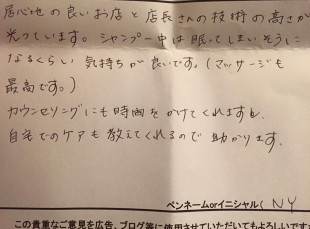 居心地の良いお店と店長さんの技術の高さが
光っています。シャンプー中は眠ってしまいそうに
なるくらい 気持ちが良いです。(マッサージも
最高です。)
カウンセリングにも時間をかけてくれますし、
自宅でのケアも教えてくれるので助かります。
ペンネームorイニシャル( NY
この貴重なご意見を広告、ブログ等に使用させていただいてもよろしいです